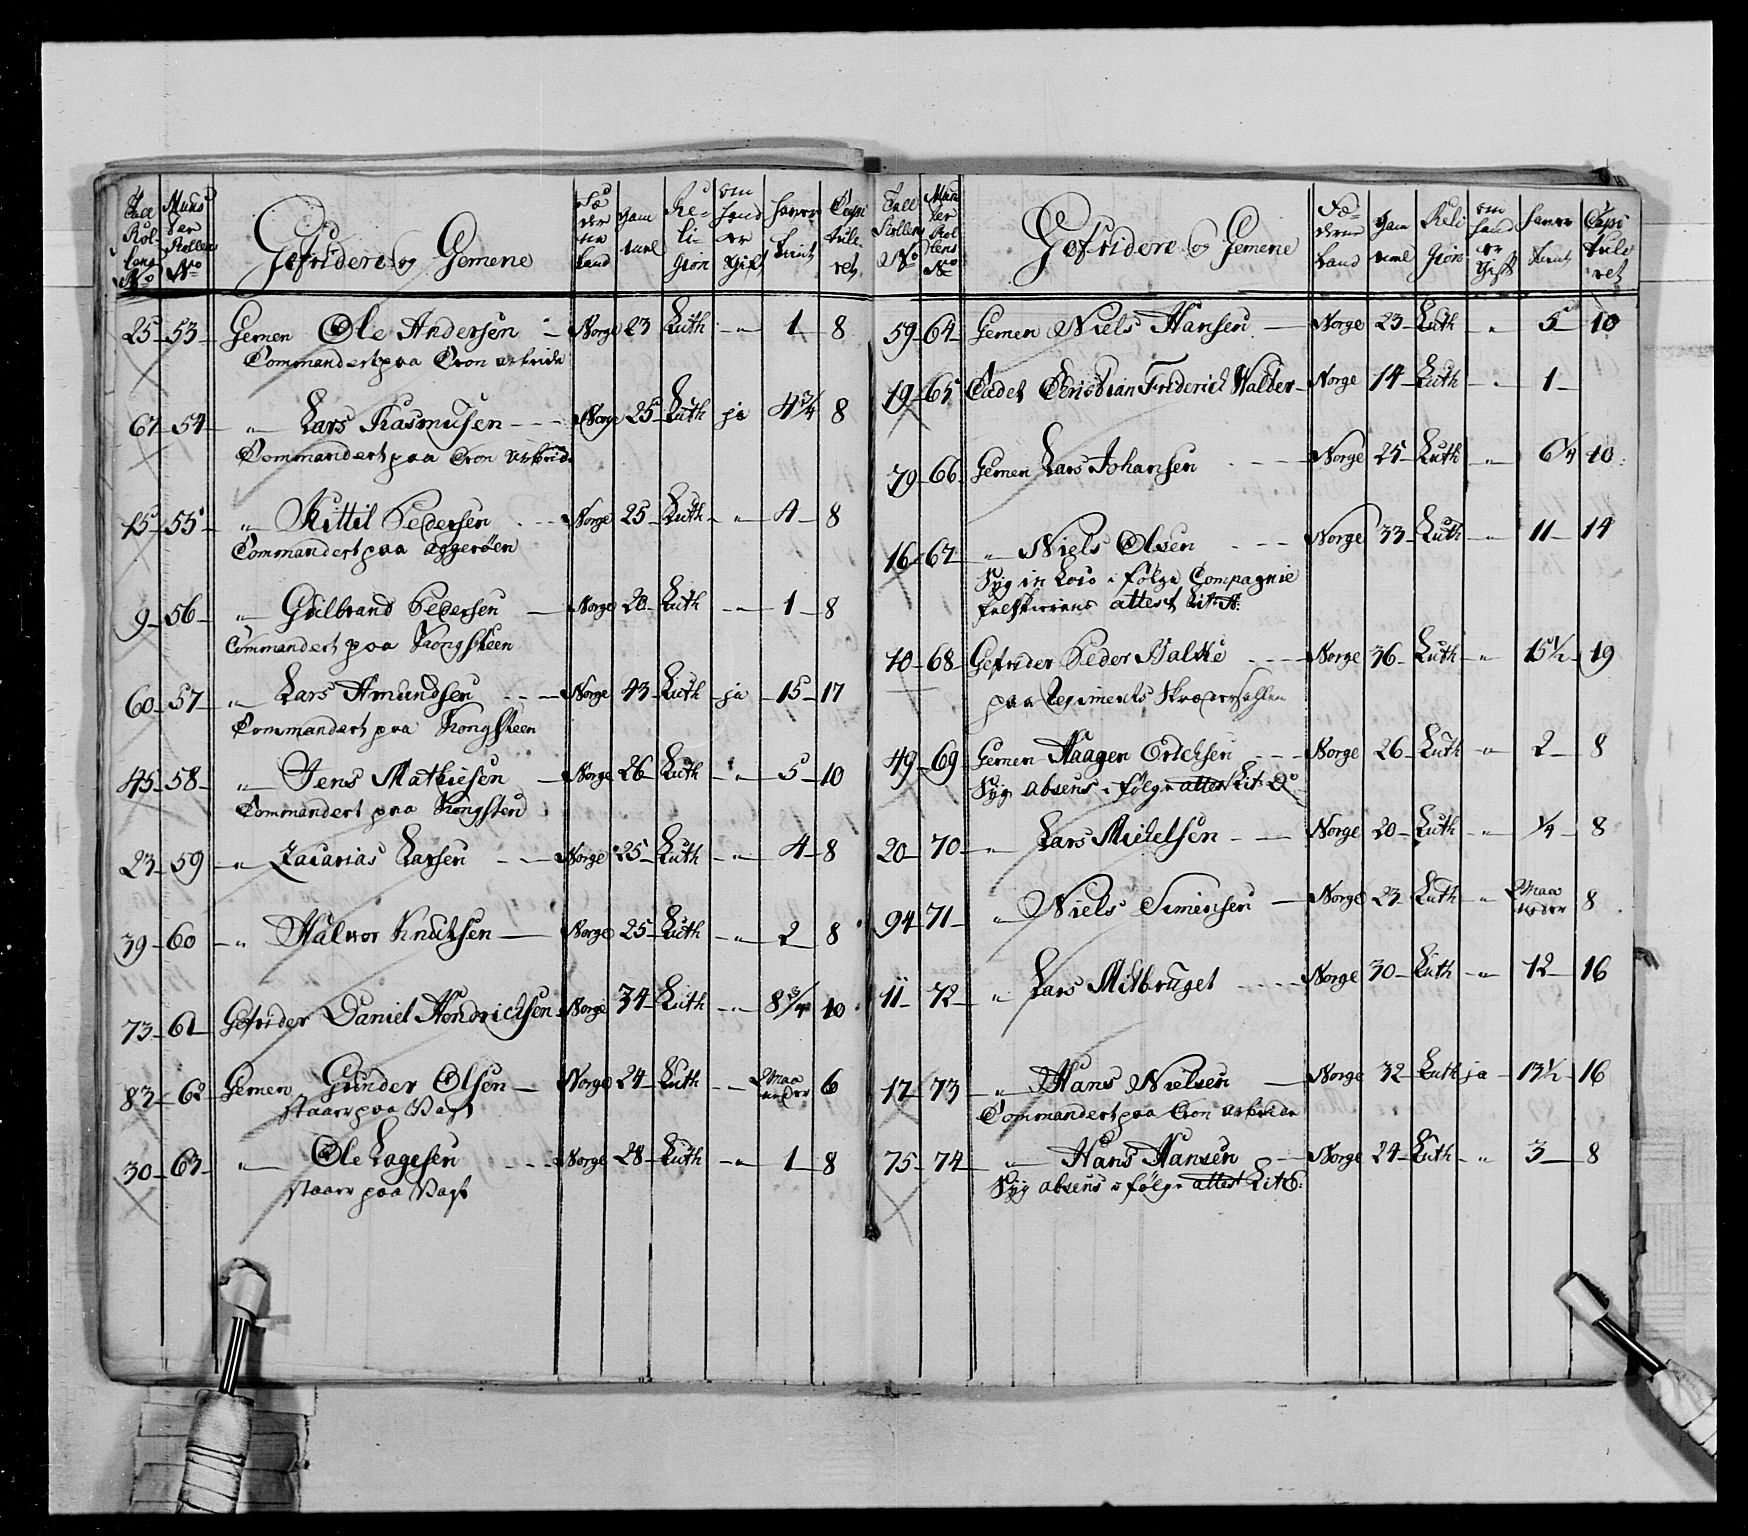 Tall Rollens No | Munster Rollens No | Gefridere og Gemene | Fæderne Land | Gammel | Religion | om hand er Gift | haver tient | Capituleret
25 53 Gemen Ole Andersen Norge 23 Luth " 1 8
Commandert paa Cron arbeide
67 54 " Lars Rasmusen Norge 25 Luth ja 4 3/4 8
Commandert paa Cron Arbeide
15 55 " Kittil Pedersen Norge 25 Luth " 4 8
Commandert paa aggerøen
9 56 " Gulbrand Pedersen Norge 20 Luth " 1 8
Commandert paa Kongsteen
60 57 " Lars Amundsen Norge 43 Luth ja 15 17
Commandert paa Kongsteen
45 58 " Jens Mathiesen Norge 26 Luth " 5 10
Commandert paa Kongsten
23 59 " Zacarias Larsen Norge 25 Luth " 4 8
39 60 " Halvor Knutsen Norge 25 Luth " 2 8
73 61 Gefrider Daniel Hendrichsen Norge 34 Luth " 8 3/4 10
83 62 Gemen Gunder Olsen Norge 24 Luth " 2 Maaneder 6
staar paa Vagt
30 63 " Ole Lagesen Norge 28 Luth " 1 8
staar paa Vagt
Tall Rollens No | Munster Rollens No | Gefridere og Gemene | Fæderne Land | Gammel | Religion | om hand er Gift | haver tient | Capituleret
59 64 Gemen Niels Hansen Norge 23 Luth " 5 10
19 65 Cadet Christian Friderich Walter Norge 14 Luth " 1
79 66 Gemen Lars Johansen Norge 25 Luth " 6 1/4 10
16 67 " Niels Olsen Norge 33 Luth " 11 14
Syg in Loco i følge Compagnie
feltskiærens attest Lit: A:
10 68 Gefrider Peder Balke Norge 36 Luth " 15 1/2 19
paa Regiments
49 69 Gemen Haagen Erichsen Norge 26 Luth " 2 8
Syg absens i følge attest Lit:
20 70 " Lars Michelsen Norge 20 Luth " 1/4 8
94 71 " Niels Simensen Norge 23 Luth " 2 Maaneder 8
11 72 " Lars Milbruget Norge 30 Luth " 12 16
17 73 " Hans Nielsen Norge 32 Luth ja 13 1/2 16
Commandert paa Cron Arbeide
75 74 " Hans Hansen Norge 24 Luth " 3 8
Syg absens i følge attest Lit: